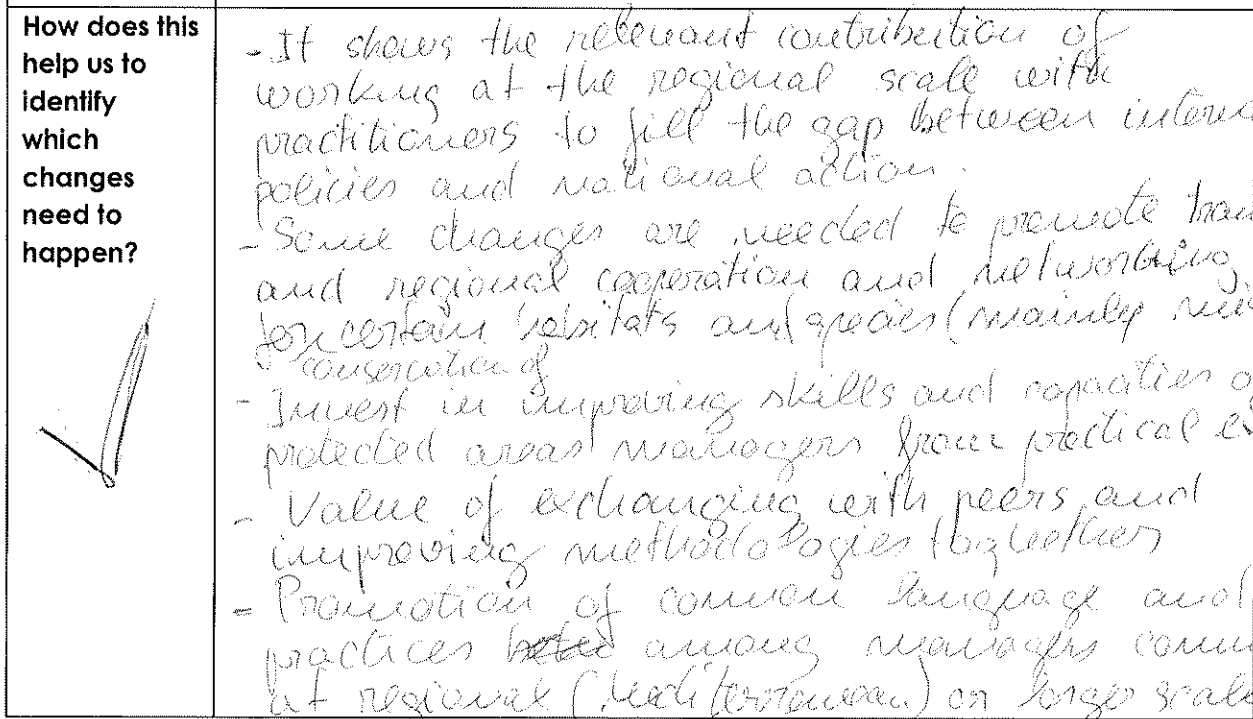 How does this
help us to
identify
which
changes
need to
happen?
- It shows the relevant contribution of
working at the regional scale with
practitioners to fill the gap between interna
policies and national action.
- Some changes are needed to promote tran
and regional cooperation and networking
for certain habitats and species (mainly mi
conservation of
- Invest in improving skills and capacities o
protected areas managers from practical ex
- Value of exchanging with peers and
improving methodologies together
- Promotion of common language and
practices among managers comm
at regional (Mediterranean) or larger scale